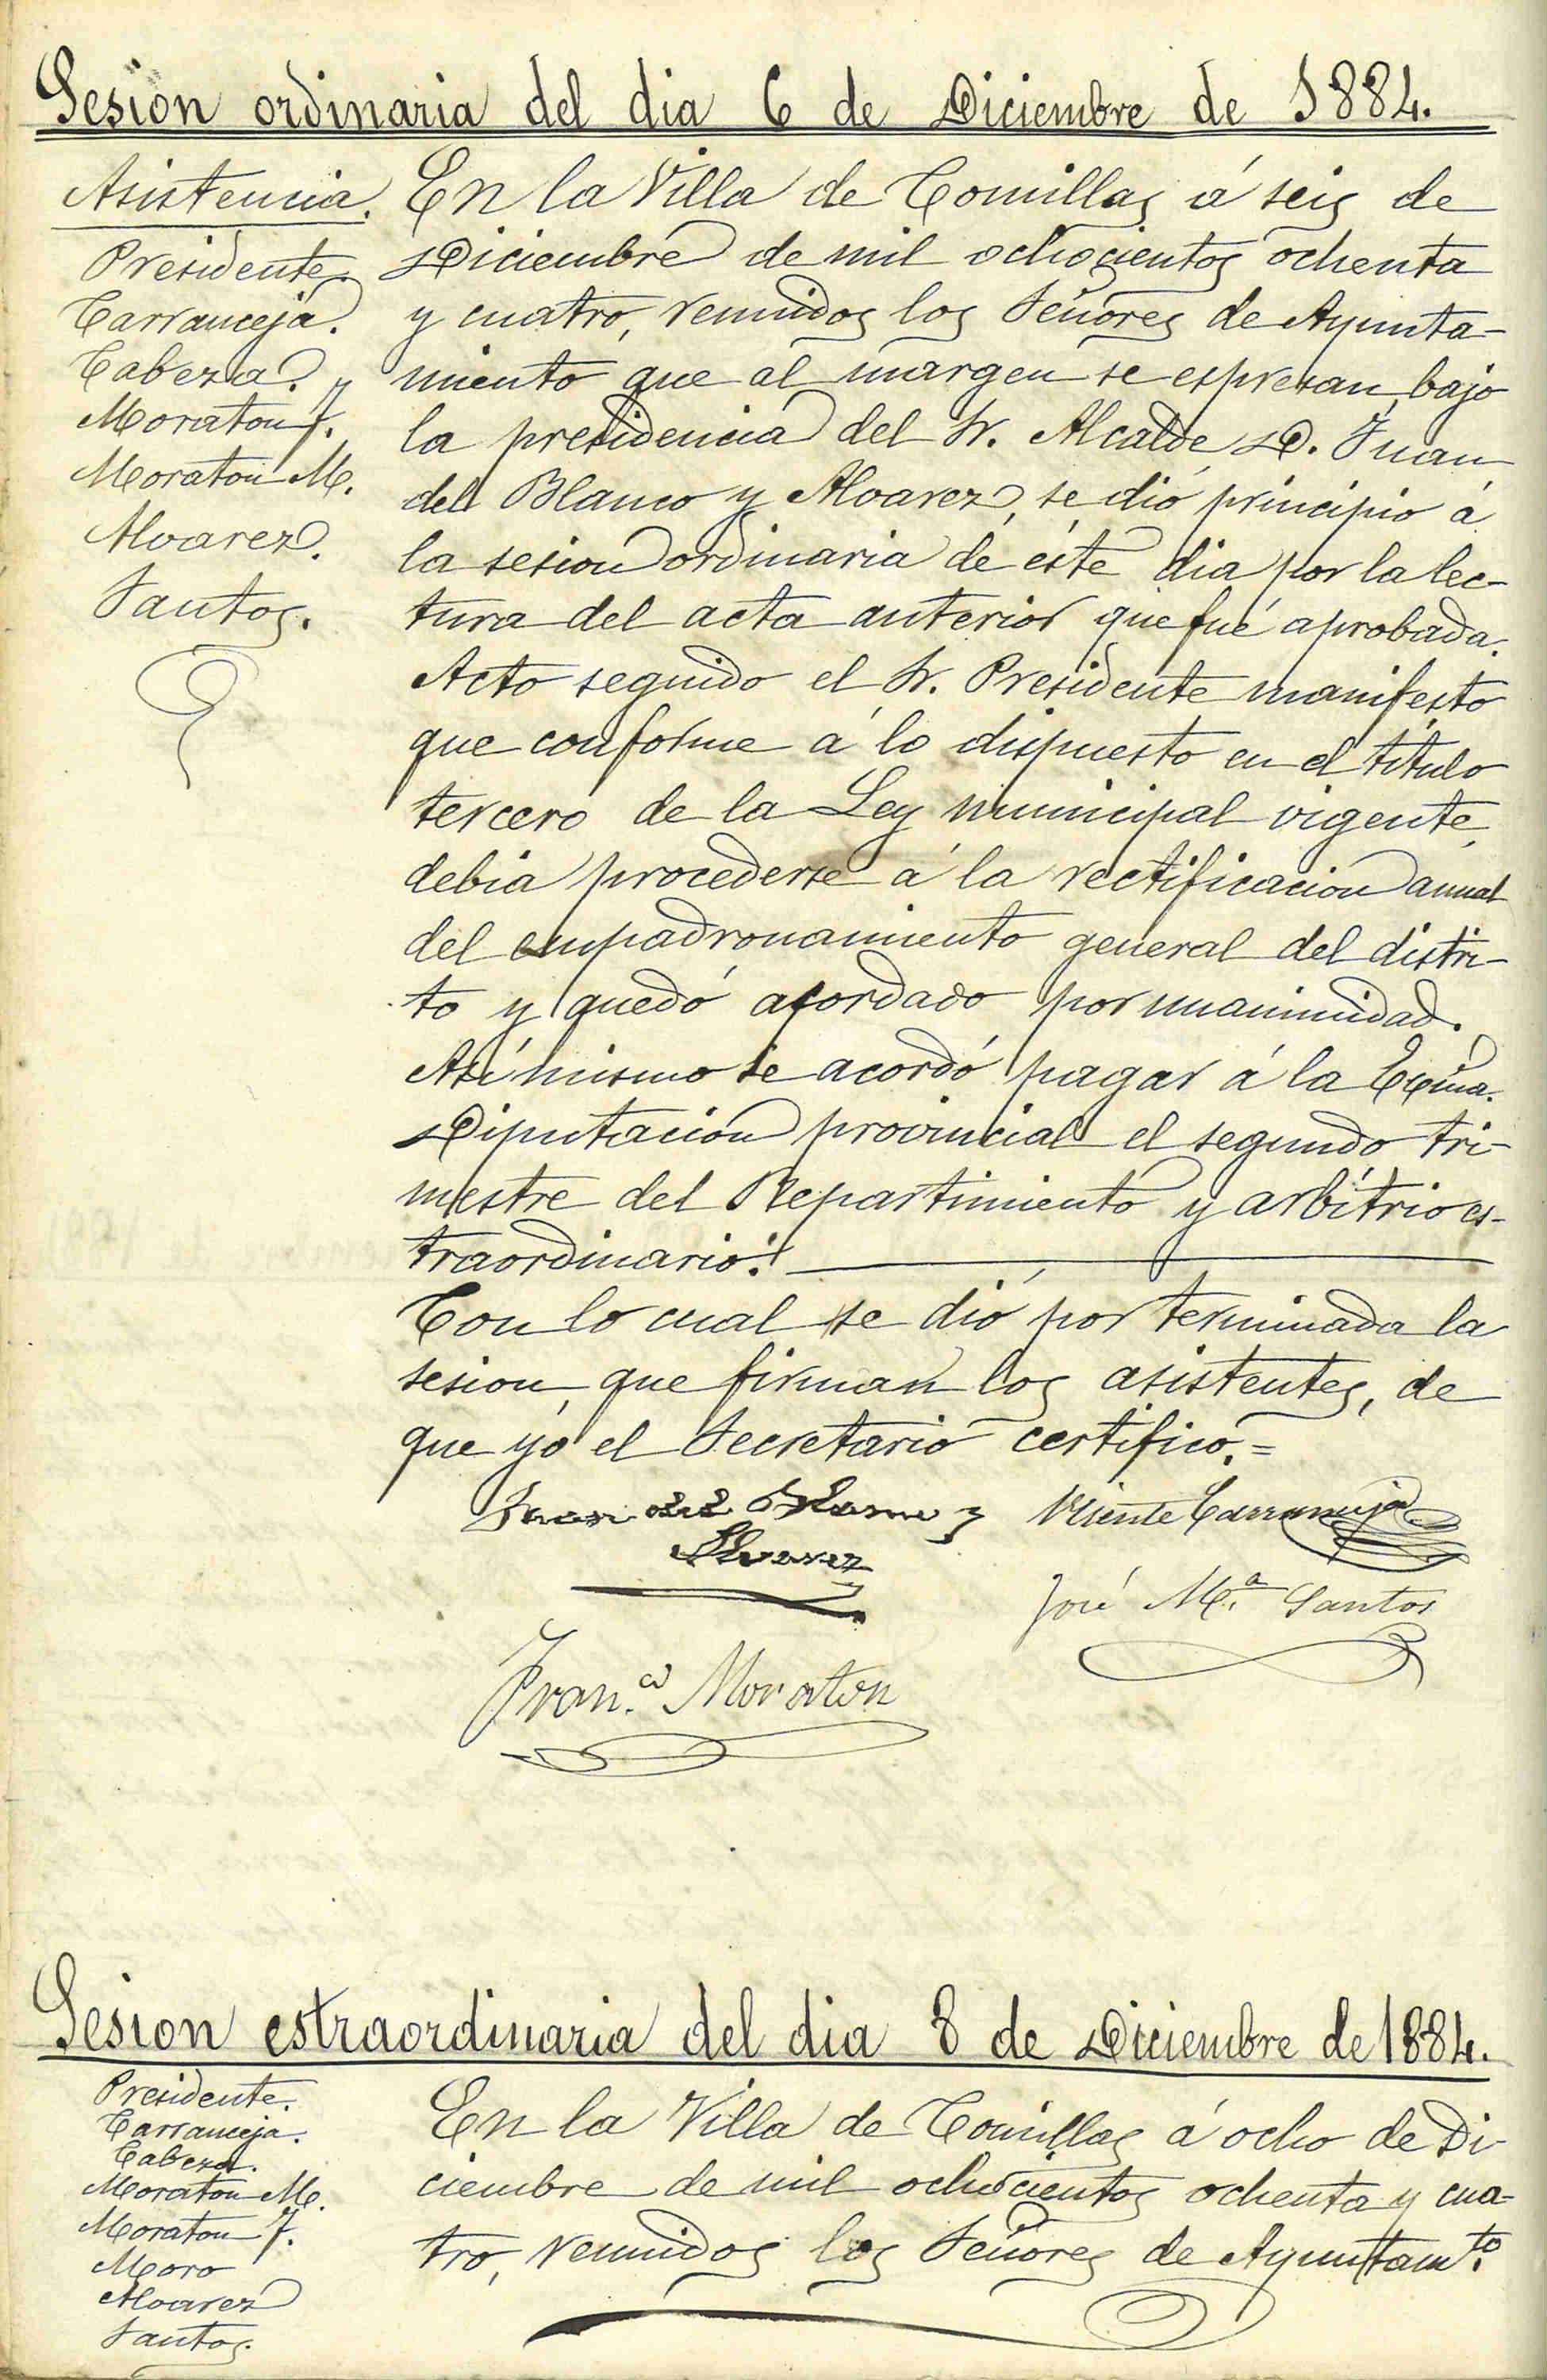 Sesion ordinaria del dia 6 de Diciembre de 1884.
Asistencia.
Presidente.
Carranceja.
Cabeza.
Moraton F.
Moraton M.
Alvarez.
Santos.
En la Villa de Comillas á seis de
Diciembre de mil ochocientos ochenta
y cuatro, reunidos los Señores de Ayunta-
miento que al margen se espresan, bajo
la presidencia del Sr. Alcalde D. Juan
del Blanco y Alvarez, se dió principio á
la sesion ordinaria de éste dia por la lec-
tura del acta anterior que fué aprobada.
Acto seguido el Sr. Presidente manifesto
que conforme á lo dispuesto en el título
tercero de la Ley municipal vigente,
debia procederse á la rectificacion anual
del empadronamiento general del distri-
to y quedó acordado por unanimidad.
Así mismo se acordó pagar á la Excma.
Diputacion provincial el segundo tri-
mestre del Repartimiento y arbítrio es-
traordinario.
Con lo cual se dió por terminada la
sesion, que firman los asistentes, de
que yó el Secretario certifico.=
Juan del Blanco y Vicente Carranceja
Alvarez
José M.ª Santos
Fran.co Moraton
Sesion estraordinaria del dia 8 de Diciembre de 1884.
Presidente.
Carranceja.
Cabeza.
Moraton M.
Moraton F.
Moro
Alvarez
Santos.
En la Villa de Comillas á ocho de Di-
ciembre de mil ochocientos ochenta y cua-
tro, reunidos los Señores de Ayuntam.to